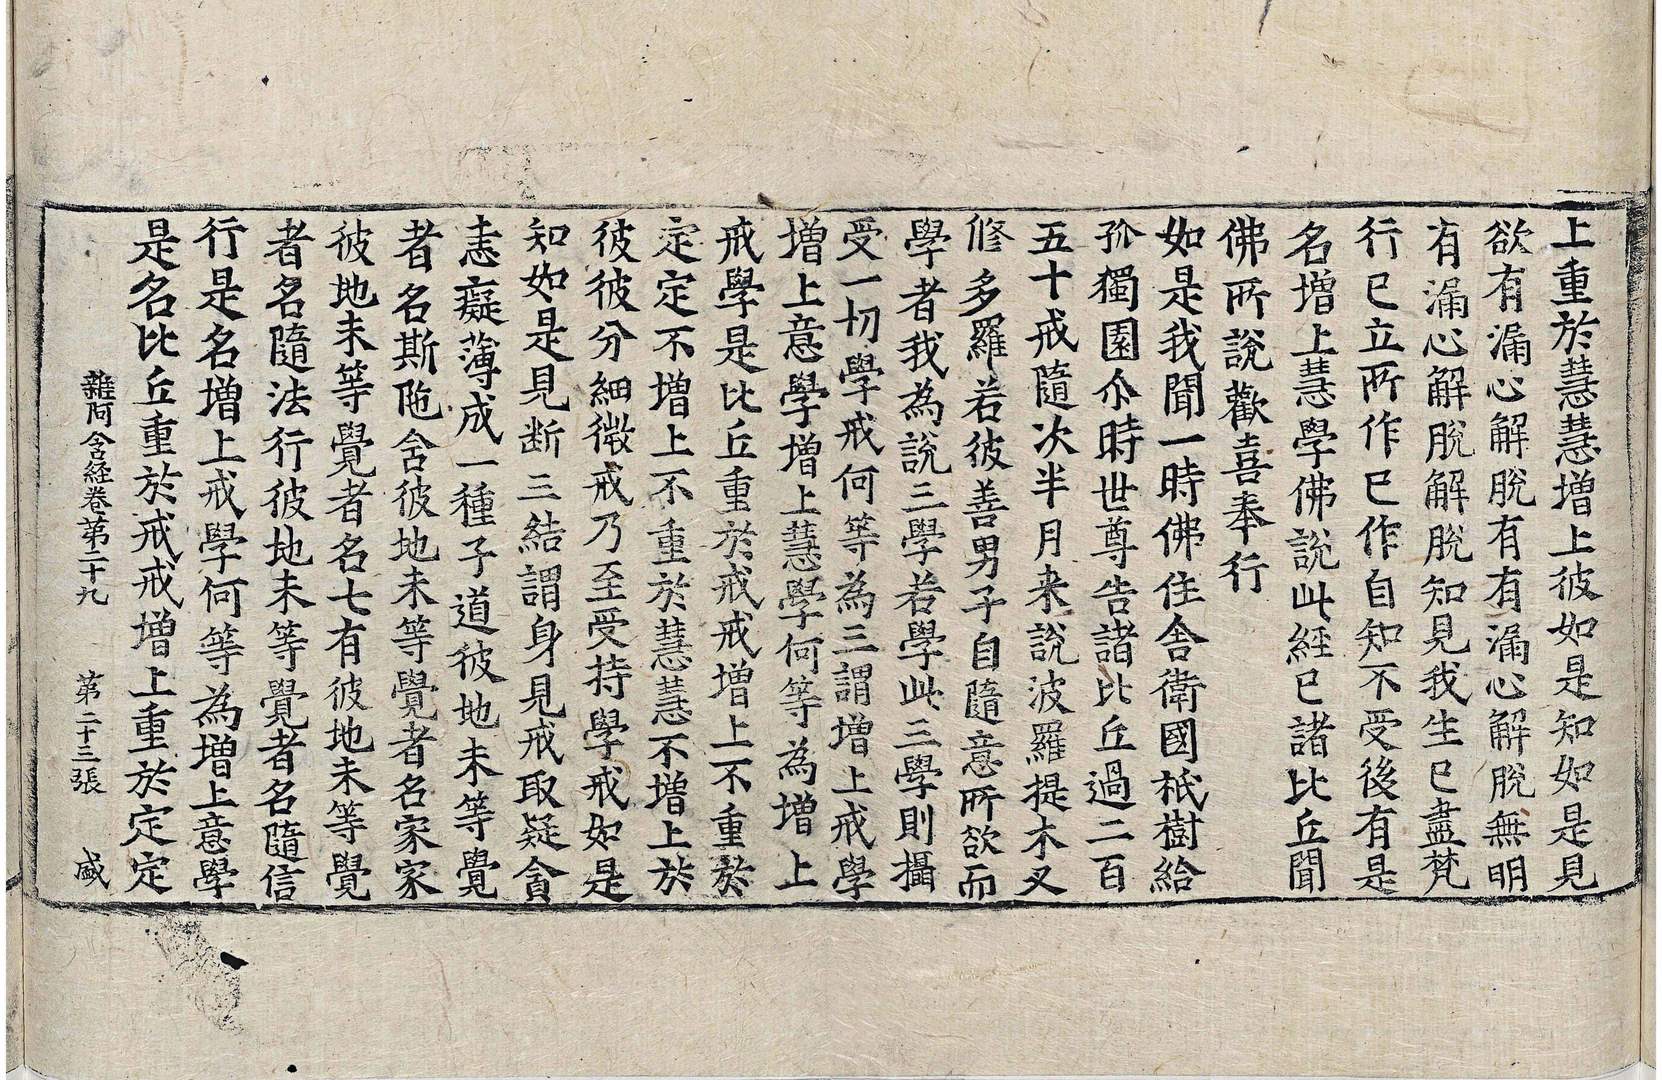 上重於慧慧增上彼如是知如是見
欲有漏心解脫有有漏心解脫無明
有漏心解脫解脫知見我生已盡梵
行已立所作已作自知不受後有是
名增上慧學佛說此經已諸比丘聞
佛所說歡喜奉行
如是我聞一時佛住舍衛國祇樹給
孤獨園尒時世尊告諸比丘過二百
五十戒隨次半月来說波羅提木叉
修多羅若彼善男子自隨意所欲而
學者我為說三學若學此三學則攝
受一切學戒何等為三謂增上戒學
增上意學增上慧學何等為增上
戒學是比丘重於戒戒增上不重於
定定不增上不重於慧慧不增上於
彼彼分細微戒乃至受持學戒如是
知如是見断三結謂身見戒取疑貪
恚癡薄成一種子道彼地未等覺
者名斯陁含彼地未等覺者名家家
彼地未等覺者名七有彼地未等覺
者名隨法行彼地未等覺者名隨信
行是名增上戒學何等為增上意學
是名比丘重於戒戒增上重於定定
雜阿含経卷第二十九 第二十三張 盛